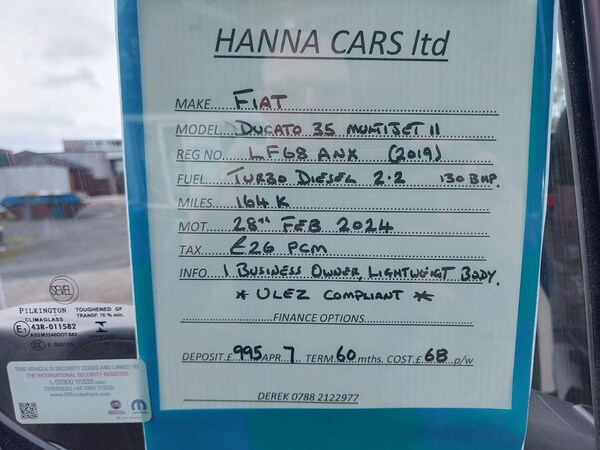 HANNA CARS ltd
MAKE FIAT
MODEL DUCATO 35 MULTIJET II
REG NO. LF68 ANX (2019)
FUEL TURBO DIESEL 2.2 130 BHP.
MILES 164 K
MOT. 28TH FEB 2024
TAX £26 PCM
INFO. 1 BUSINESS OWNER, LIGHTWEIGT BODY.
* ULEZ COMPLIANT *
FINANCE OPTIONS
DEPOSIT.£ 995 APR 7 TERM 60 mths. COST.£ 68 p/w
DEREK 0788 2122977
SEVEL
PILKINGTON TOUGHENED GF
CLIMAGLASS TRANSP. 75 % min.
E3 43R-011582
THIS VEHICLE IS SECURITY CODED AND LINKED TO
THE INTERNATIONAL SECURITY REGISTER
07000 111333
OVERSEAS +44 7000 111333